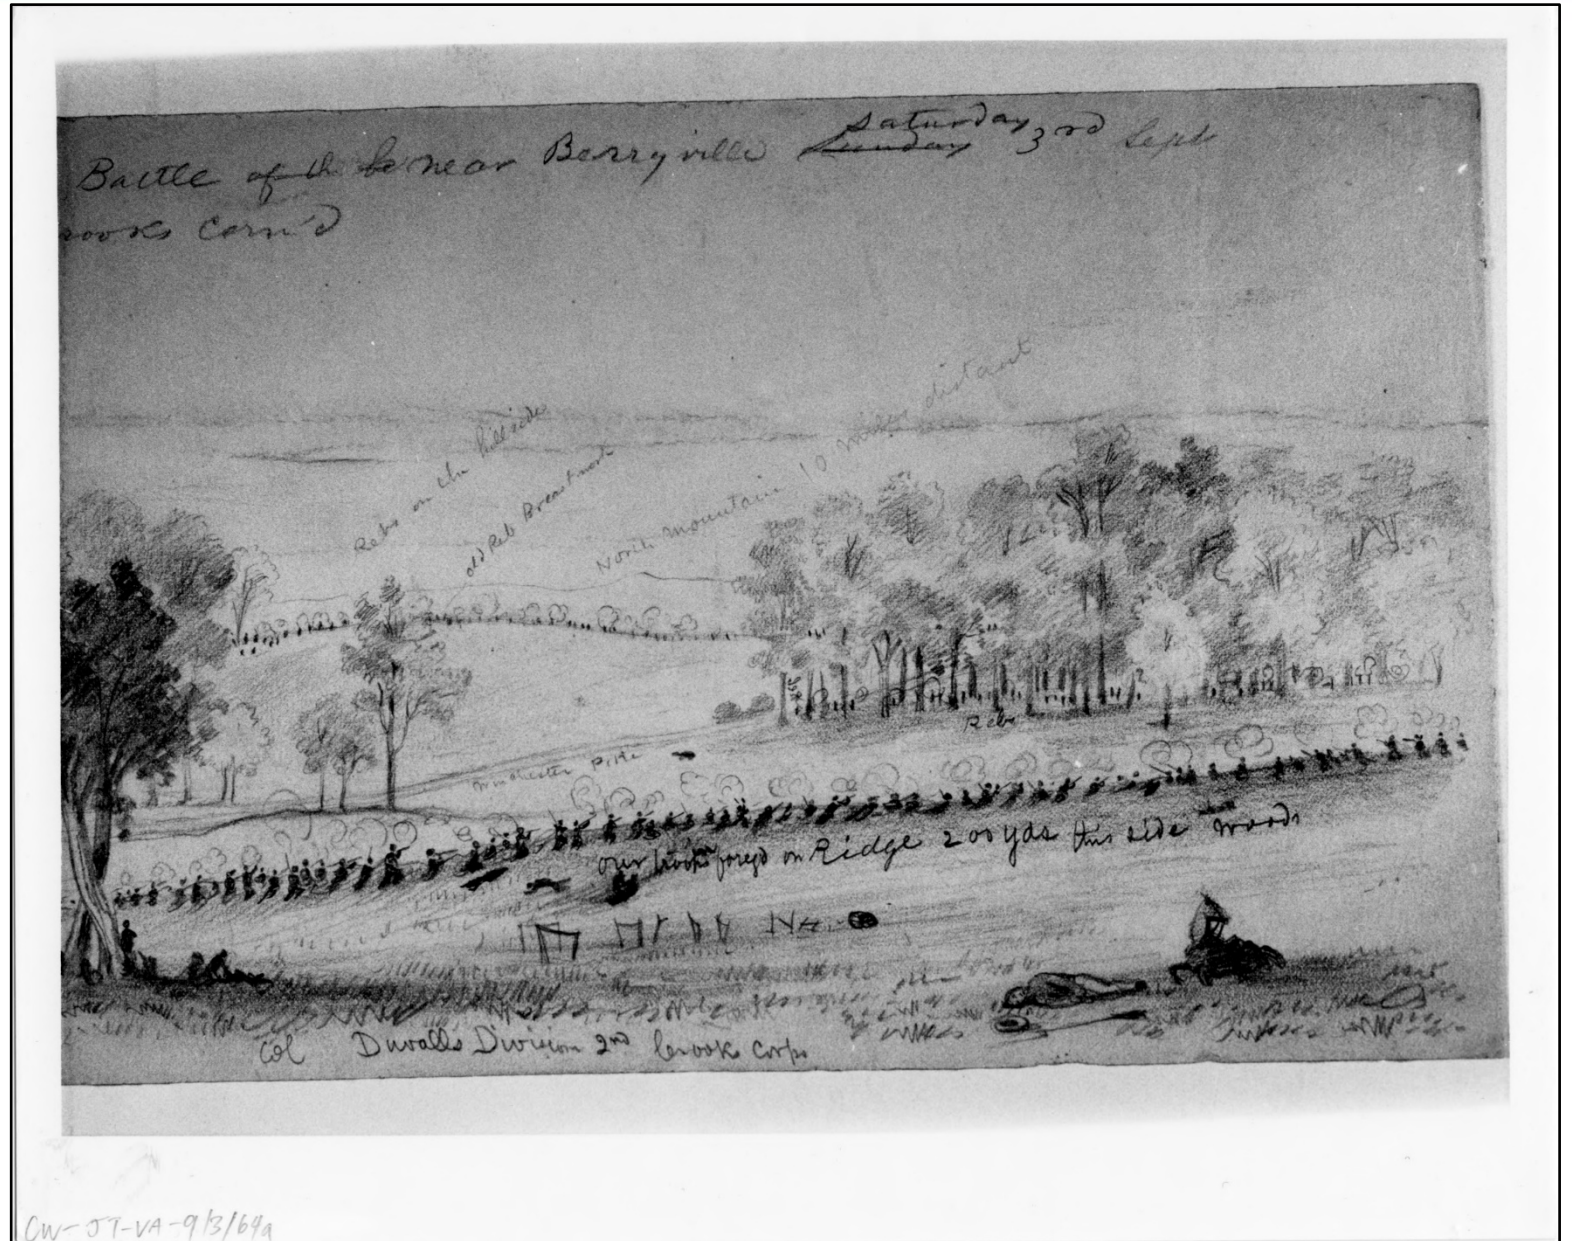 Battle of th be near Berryville Saturday 3rd Sept
Sunday
rooks Com'd
Rebs on the hillside
old Reb Breastwork
North Mountain 10 miles distant
Rebs
Winchester Pike
our troops on Ridge 200 yds this side woods
Col Duvalls Division 2nd Crooks Corps
CW-JT-VA-9/3/64a